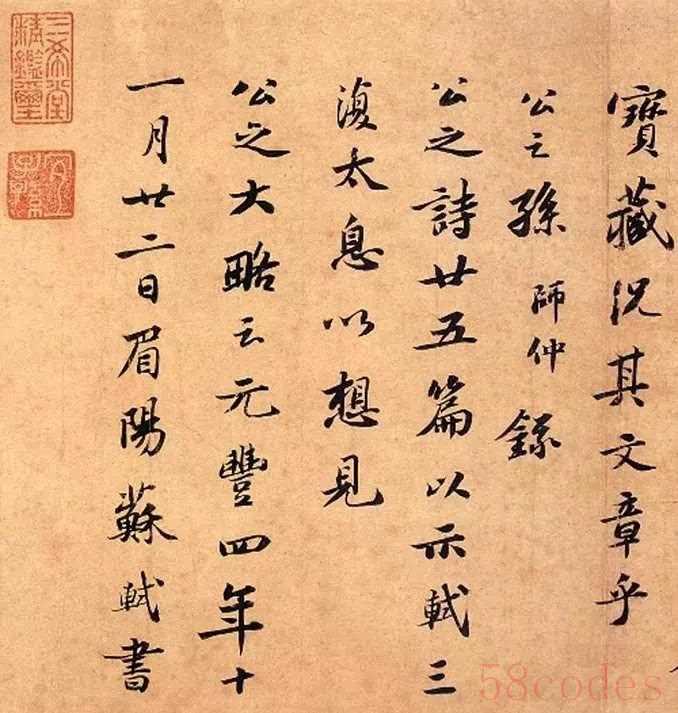 寶藏況其文章乎
公之孫師仲錄
公之詩廿五篇以示軾三
復太息以想見
公之大略云元豐四年十
一月廿二日眉陽蘇軾書
三希堂精鑑璽
宜子孫
58codes